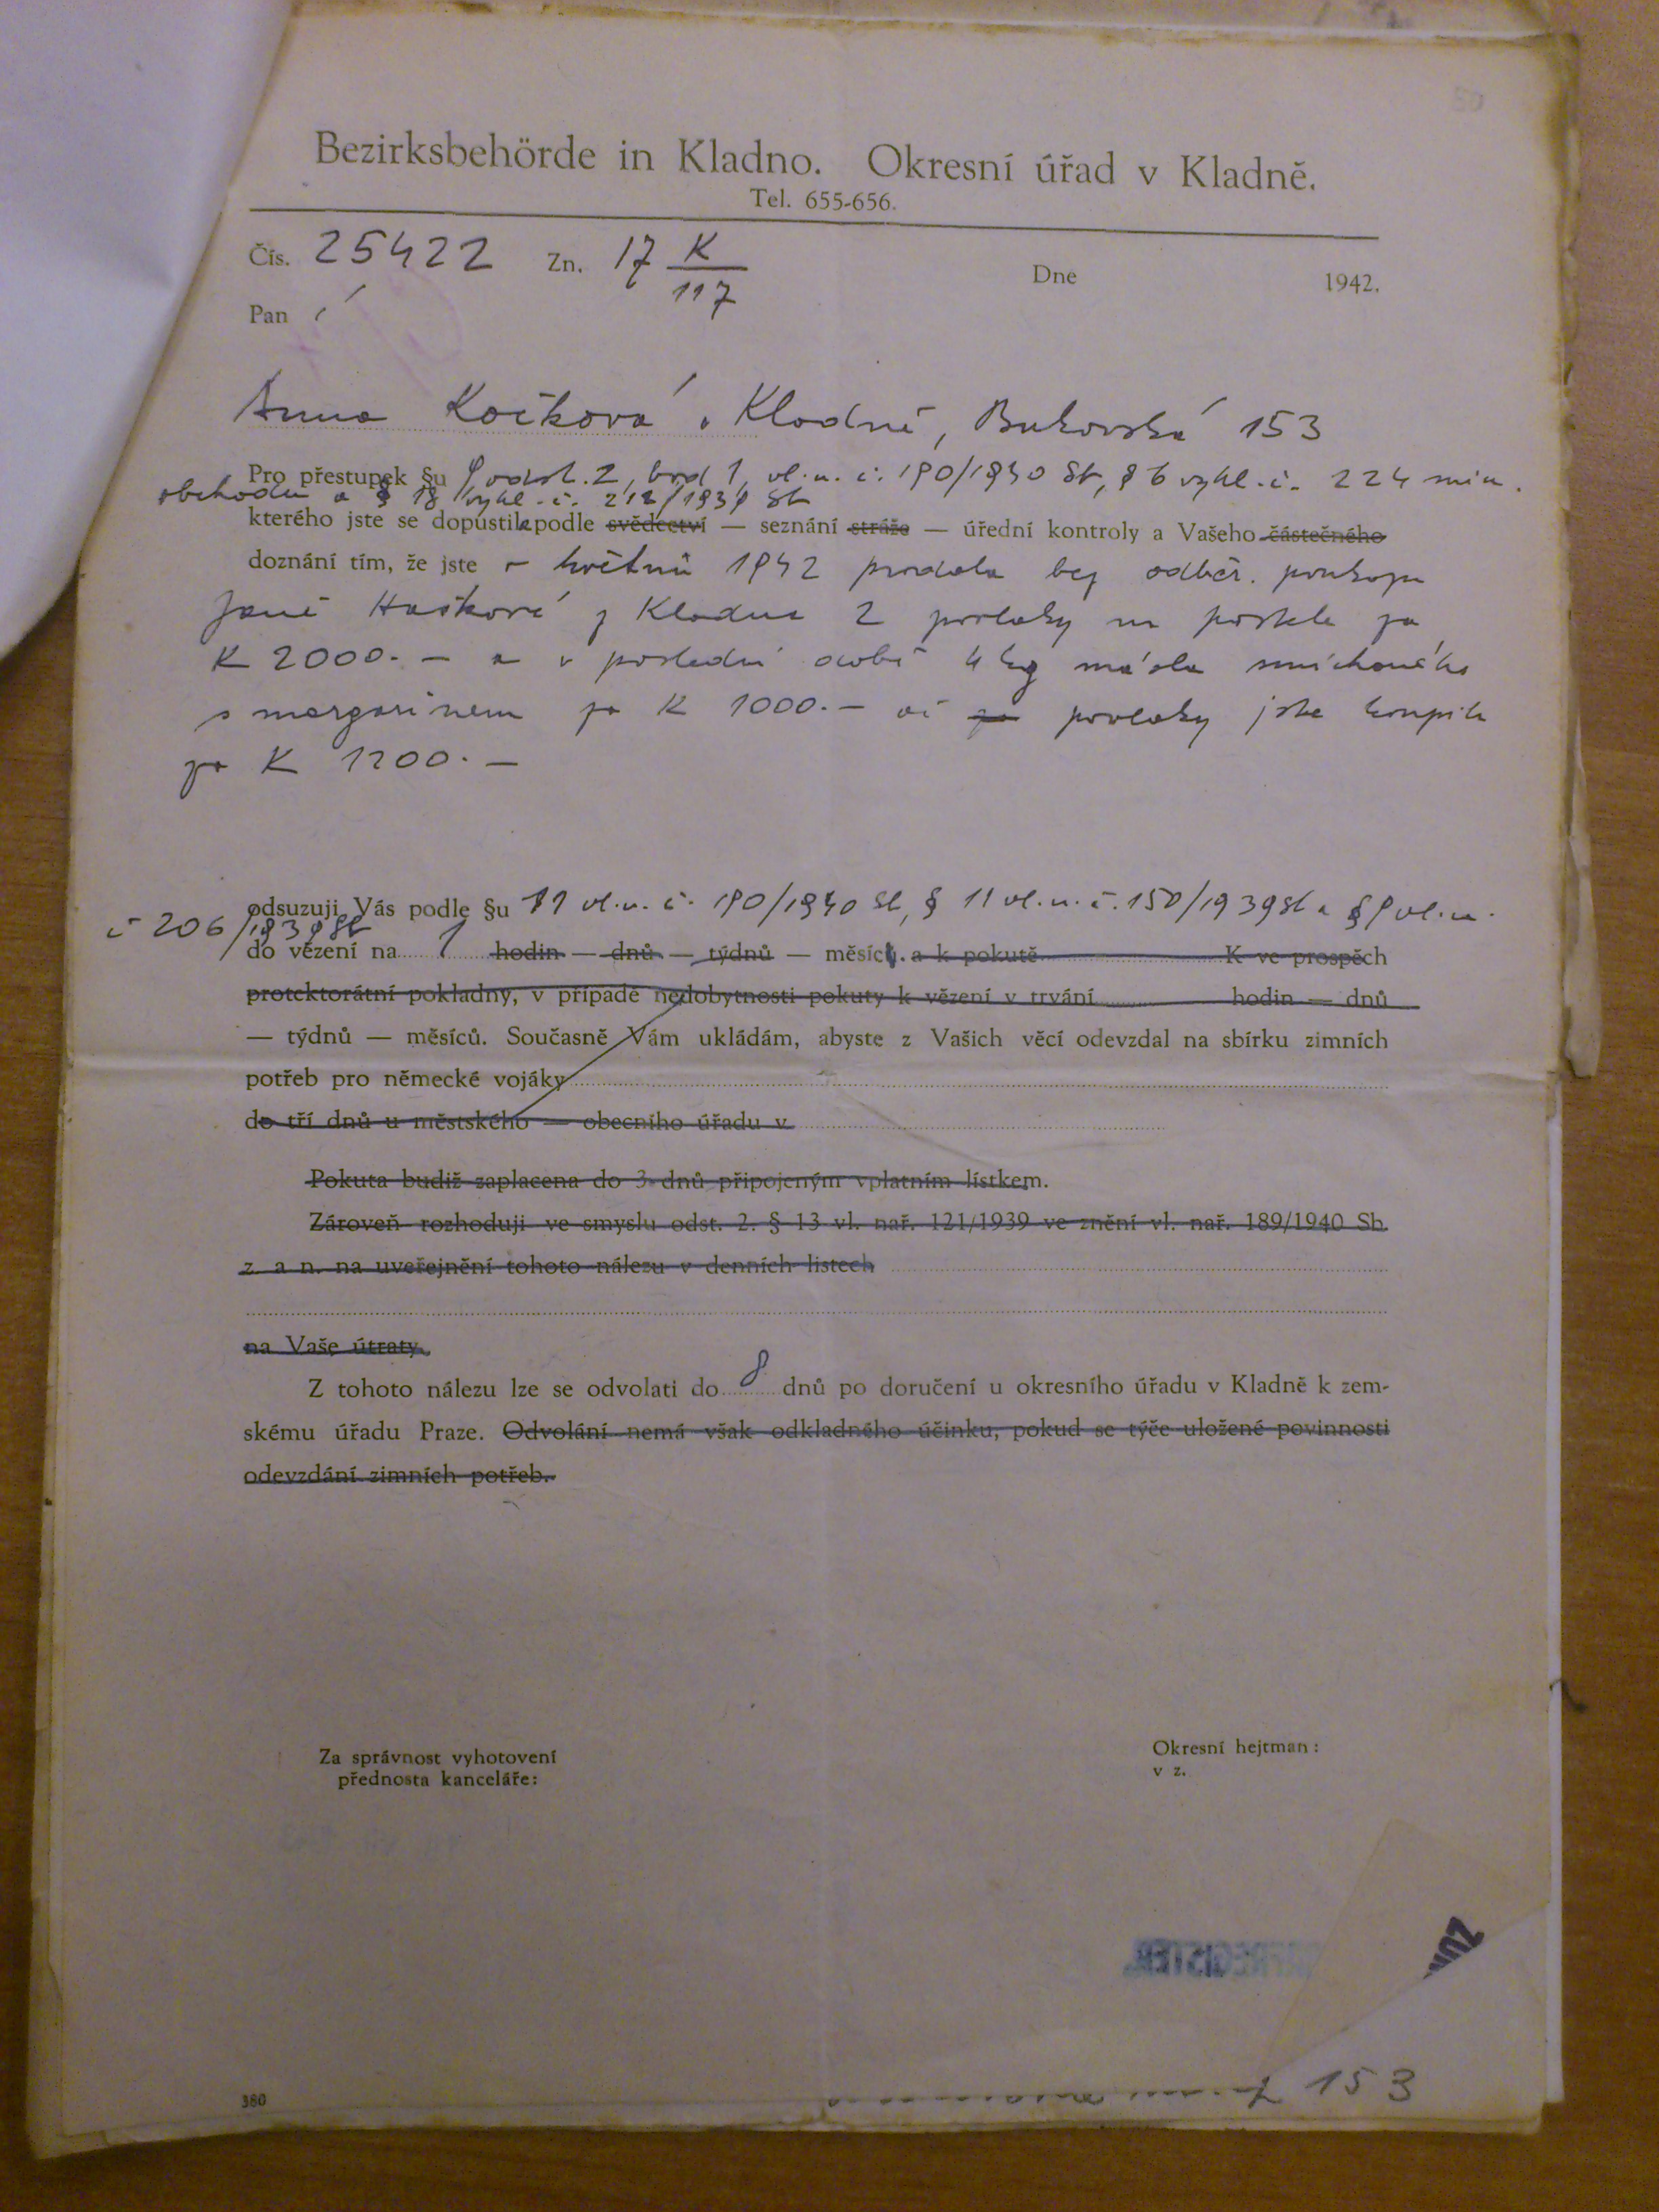 Bezirksbehörde in Kladno. Okresní úřad v Kladně.
Tel. 655-656.
Čís. 25422 Zn. 17 K/117 Dne 1942.
Pan í
Anna Kočková v Kladně, Bukovská 153
Pro přestupek §u 9 odst. 2, bod 1, vl. n. č. 190/1940 Sb, § 6 vyhl. č. 224 min.
obchodu a § 18 vyhl. č. 212/1939 Sb
kterého jste se dopustila podle svědectví — seznání stráže — úřední kontroly a Vašeho částečného
doznání tím, že jste v květnu 1942 prodala bez odběr. poukazu
Janě Haškové z Kladna 2 povlaky na postele za
K 2000.— a v poslední době 4 kg másla smíchaného
s margarinem za K 1000.— ač za povlaky jste koupila
za K 1200.—
odsuzuji Vás podle §u 11 vl. n. č. 190/1940 Sb, § 11 vl. n. č. 150/1939 Sb a § 9 vl. n.
č 206/1939 Sb
do vězení na 1 hodin — dnů — týdnů — měsíc. a k pokutě K ve prospěch
protektorátní pokladny, v případě nedobytnosti pokuty k vězení v trvání hodin — dnů
— týdnů — měsíců. Současně Vám ukládám, abyste z Vašich věcí odevzdal na sbírku zimních
potřeb pro německé vojáky
do tří dnů u městského — obecního úřadu v
Pokuta budiž zaplacena do 3 dnů připojeným vplatním lístkem.
Zároveň rozhoduji ve smyslu odst. 2. § 13 vl. nař. 121/1939 ve znění vl. nař. 189/1940 Sb.
z. a n. na uveřejnění tohoto nálezu v denních listech
na Vaše útraty.
Z tohoto nálezu lze se odvolati do 8 dnů po doručení u okresního úřadu v Kladně k zem-
skému úřadu Praze. Odvolání nemá však odkladného účinku, pokud se týče uložené povinnosti
odevzdání zimních potřeb.
Za správnost vyhotovení
přednosta kanceláře:
Okresní hejtman:
v z.
153
380